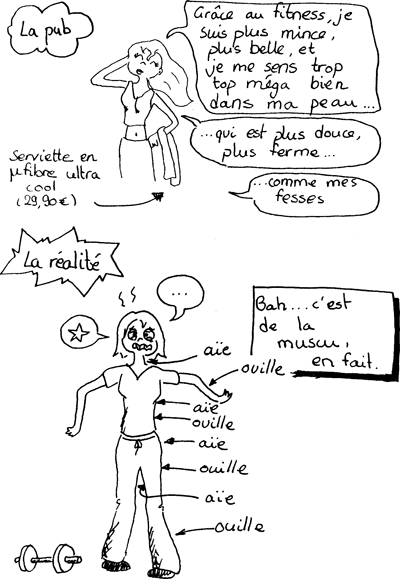 La pub
Grâce au fitness, je
suis plus mince,
plus belle, et
je me sens trop
top méga bien
dans ma peau...
...qui est plus douce,
plus ferme...
...comme mes
fesses
Serviette en
µfibre ultra
cool
(29,90€)
La réalité
...
Bah...c'est
de la
muscu,
en fait.
aïe
ouille
aïe
ouille
aïe
ouille
aïe
ouille